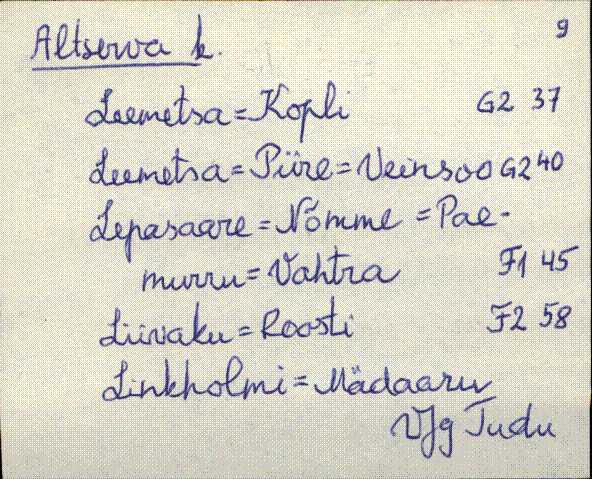 9
Altserva k.
Leemetsa = Kopli G2 37
Leemetsa = Piire = Veinsoo G2 40
Lepasaare = Nõmme = Pae-
murru = Vahtra F1 45
Liivaku = Roosti F2 58
Linkholmi = Mädaaru
VJg Tudu